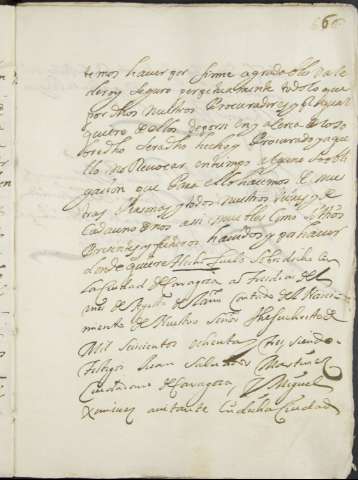 66
temos haver por firme agradable vale
dero y seguro perpetuamente todo lo que
por dhos nuestros Procuradores y qualquiere
quiere de ellos de por si en y acerca de lo so
bredho sera dho hecho y Procurado y aque
llo no Revocar en tiempo alguno so obli
gacion que para ello hacemos de nues
tras Personas y todos nuestros vienes y de
cada uno de nos assi muebles como sitios
havidos y por haver
donde quiere Hecho fue lo sobredicho en
la Ciudad de Zaragoza a del
mes de del año contado del Nasci
miento de Nuestro Señor Jhesuchristo de
Mil seiscientos ochenta y siendo
testigos Juan Salvador Martinez
Ciudadano de Zaragoza, y Miguel
Ximenez avitantes en dicha Ciudad